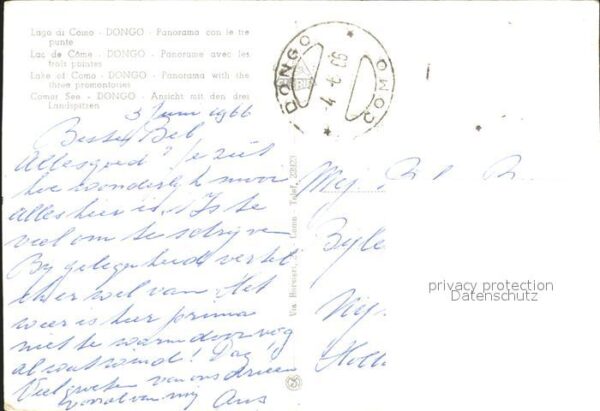 Lago di Como - DONGO - Panorama con le tre
punte
Lac de Côme - DONGO - Panorame avec les
trois pointes
Lake of Como - DONGO - Panorama with the
three promontories
Comer See - DONGO - Ansicht mit den drei
Landspitzen
3 Juni 1966
Beste Bel
Alles goed? Je ziet
hoe wonderlijk mooi
alles hier is. 't Is te
veel om te schrijven
Bij gelegenheid vertel
ik er wel van. Het
weer is hier prima
niet te warm door nog
al wat wind! Dag!
Veel groeten van ons drieen
vooral van mij Ans
DONGO
COMO
Mej. R
Bijle
Nij
Holl
Via Como Telef.
privacy protection
Datenschutz